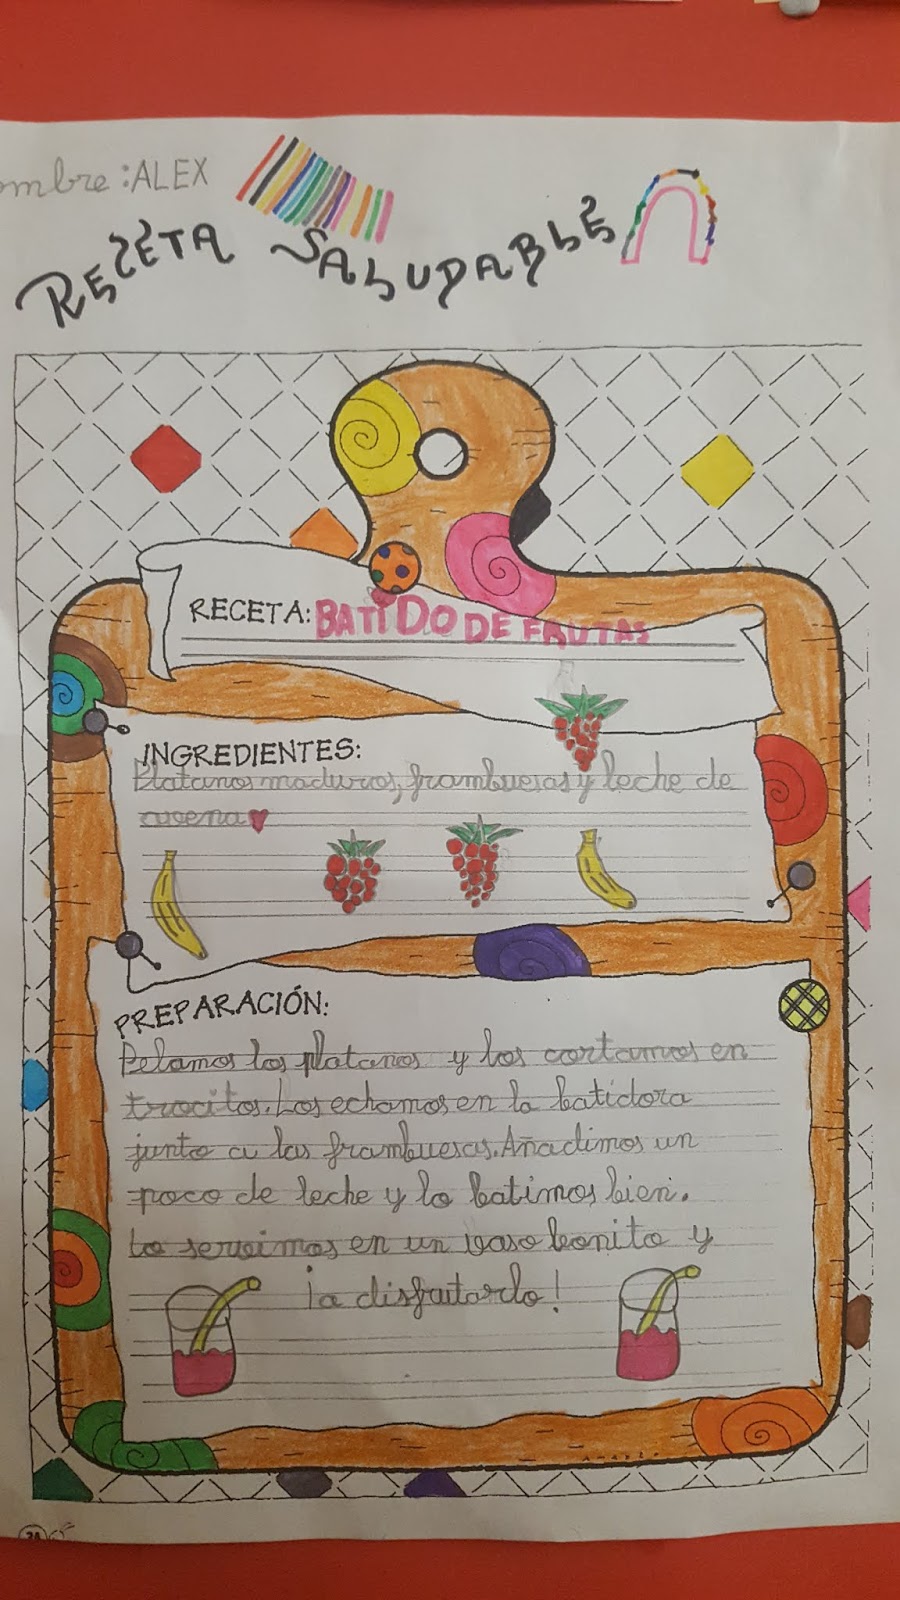 ombre: ALEX
RECETA SALUDABLE
RECETA: BATIDO DE FRUTAS
INGREDIENTES:
Platanos maduros, frambuesas y leche de
avena
PREPARACIÓN:
Pelamos los platanos y los cortamos en
trocitos. Los echamos en la batidora
junto a las frambuesas. Añadimos un
poco de leche y lo batimos bien.
Lo servimos en un vaso bonito y
¡a disfrutarlo!